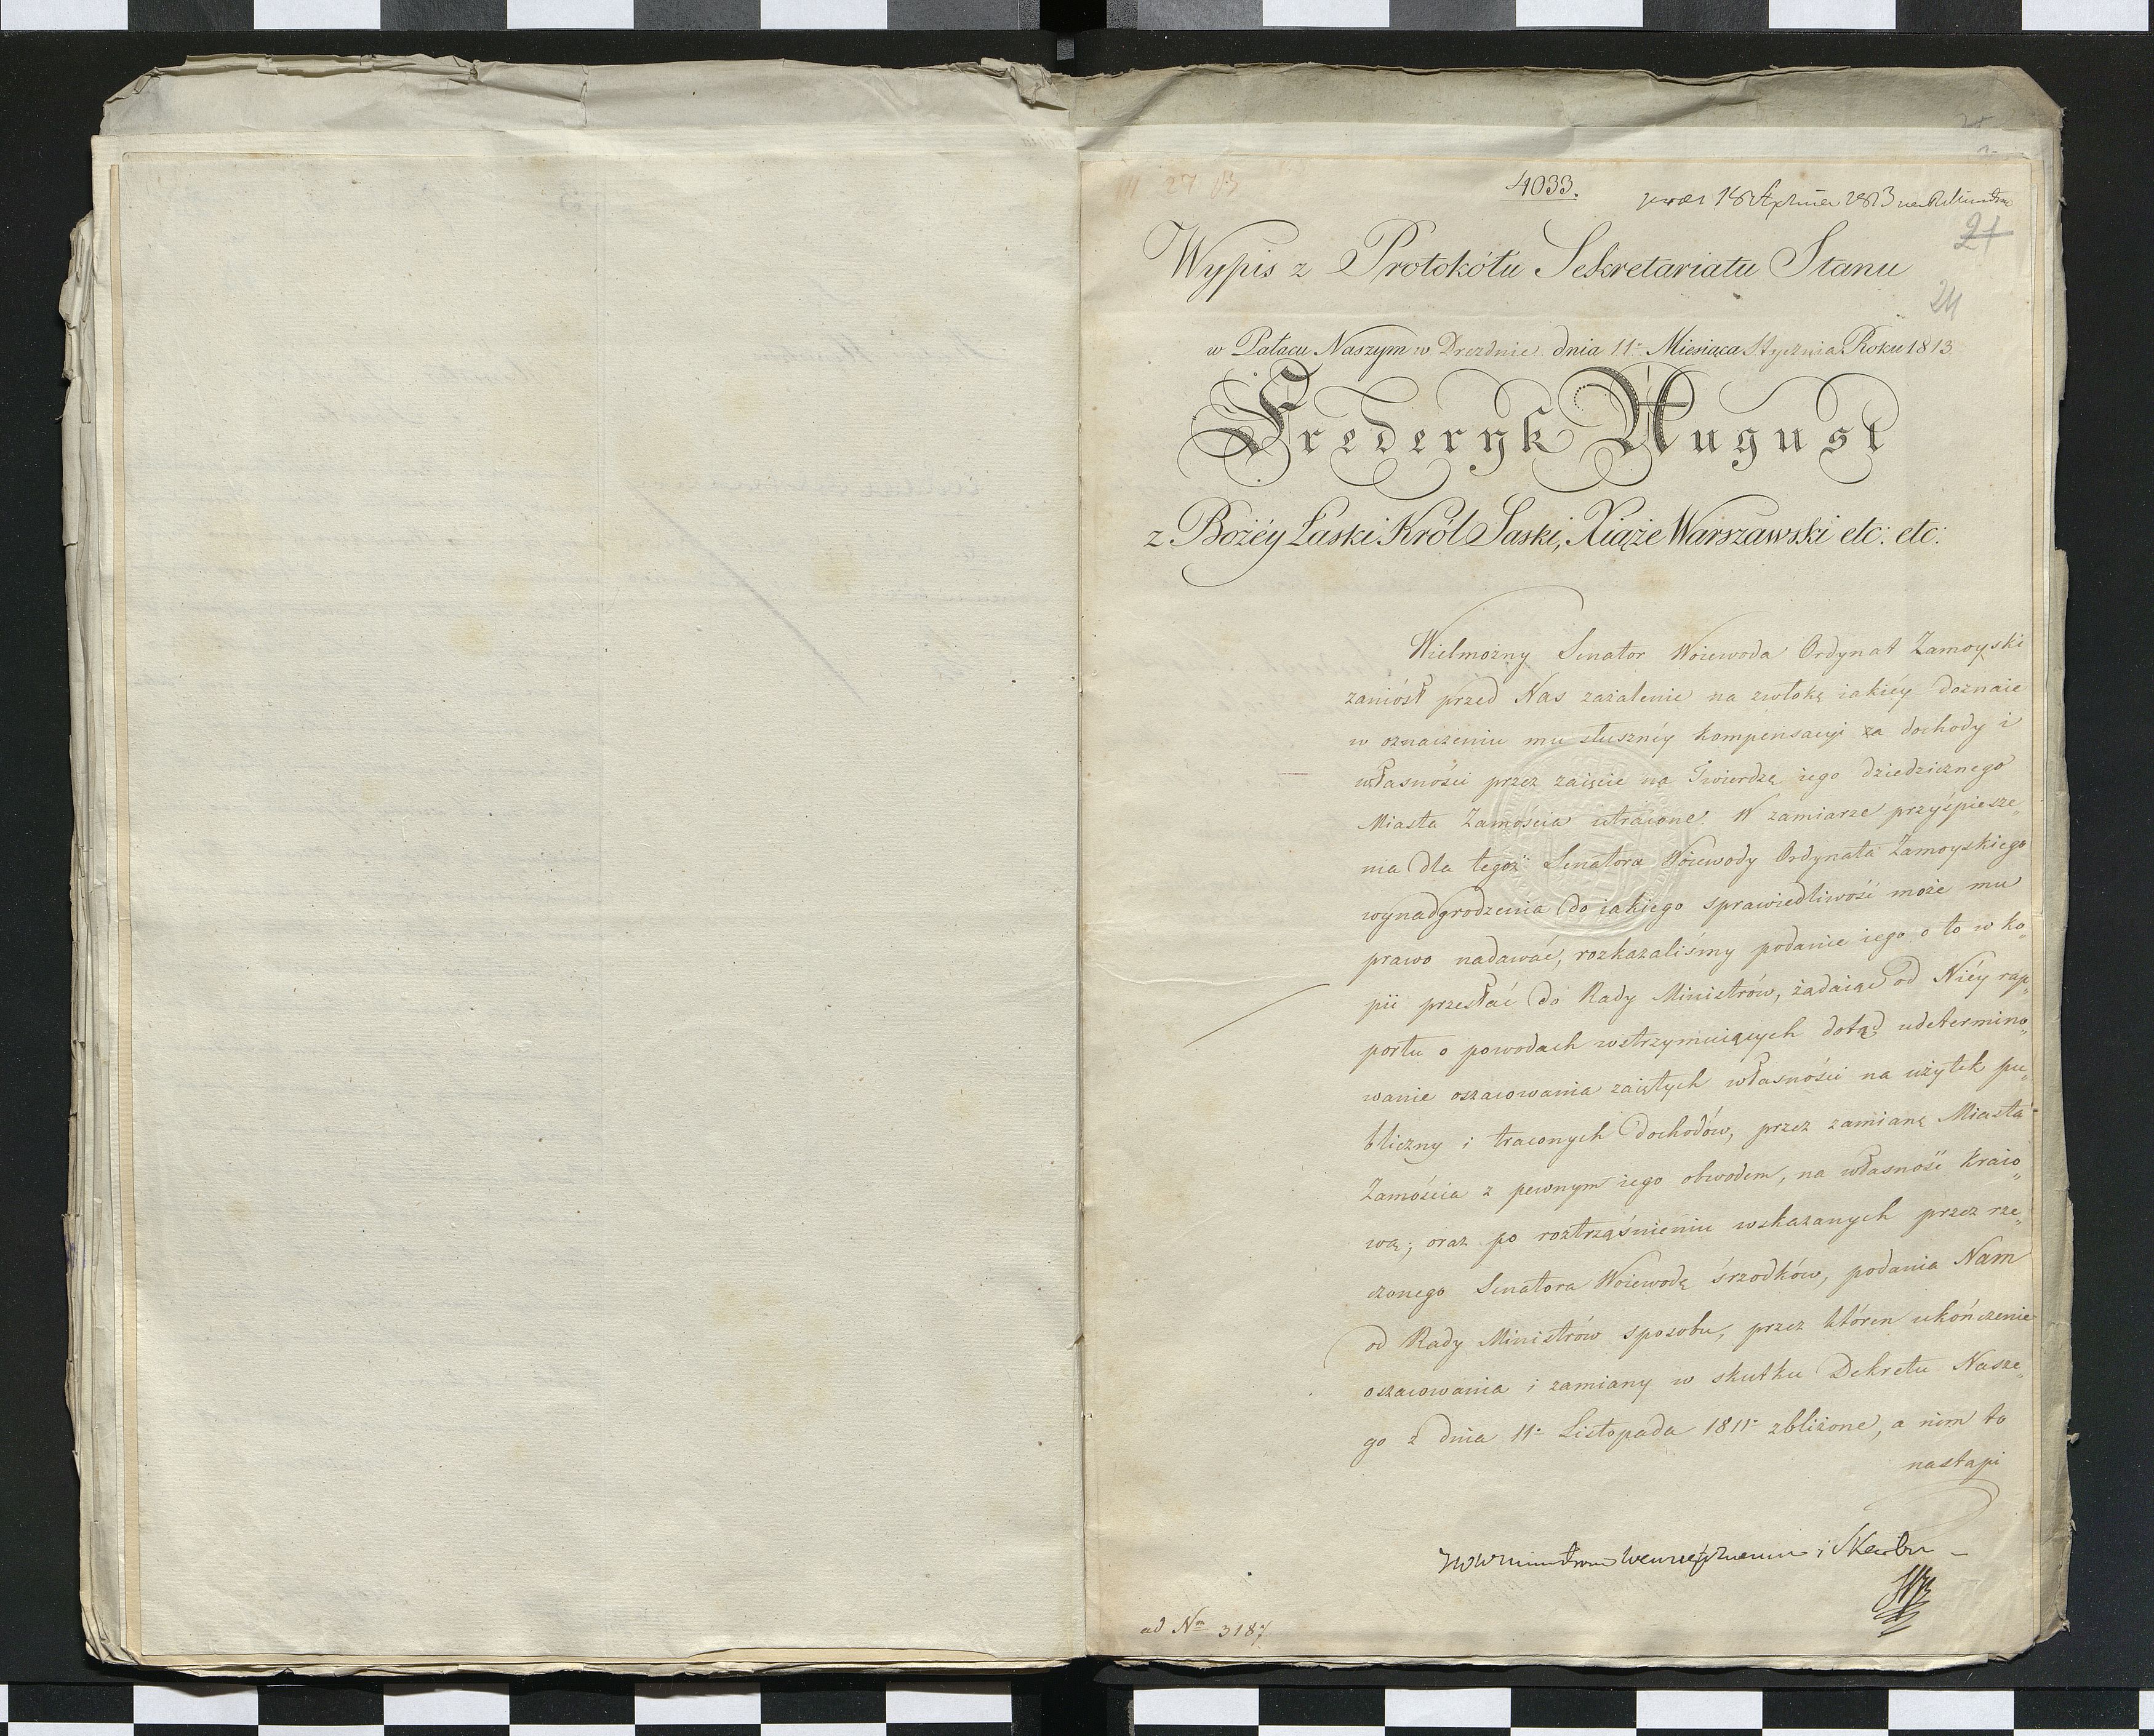 4033.
21
24
Wypis z Protokółu Sekretariatu Stanu
w Pałacu Naszym w Dreznie dnia 11º Miesiąca Stycznia Roku 1813
Frederyk August
z Bożéy Łaski Król Saski, Xiąże Warszawski etc: etc:
Wielmożny Senator Woiewoda Ordynat Zamoyski
zaniósł przed Nas zażalenie na zwłokę iakiéy doznaie
w oznaczeniu mu słusznéy kompensacyi za dochody i
własności przez zaięcie na Twierdzę iego dziedzicznego
Miasta Zamościa utracone. W zamiarze przyśpiesze„
nia dla tegoż Senatora Woiewody Ordynata Zamoyskiego
wynadgrodzenia do iakiego sprawiedliwość może mu
prawo nadawać, rozkazaliśmy podanie iego o to w ko„
pii przesłać do Rady Ministrów, żądaiąc od Niéy rap„
portu o powodach wstrzymuiących dotąd udetermino„
wanie oszacowania zaiętych własności na użytek pu„
bliczny i traconych dochodów, przez zamianę Miasta
Zamościa z pewnym iego obwodem, na własność kraio„
wą; oraz po roztrząśnieniu wskazanych przez rze„
czonego Senatora Woiewodę śrzodków, podania Nam
od Rady Ministrów sposobu, przez któren ukończenie
oszacowania i zamiany w skutku Dekretu Nasze„
go z dnia 11º Listopada 1811º zbliżone, a nim to
nastąpi
i Skarbu
ad Nm 3187